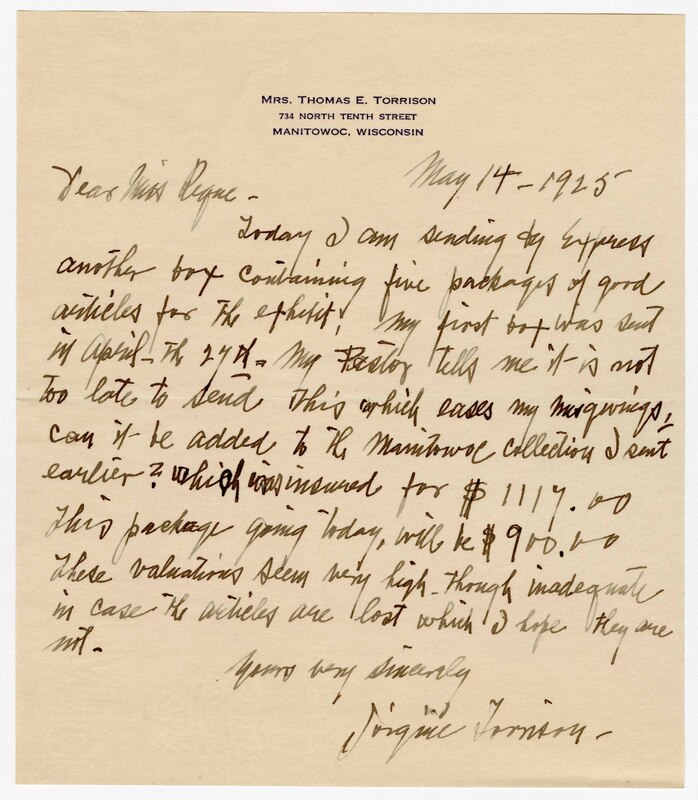 MRS. THOMAS E. TORRISON
734 NORTH TENTH STREET
MANITOWOC, WISCONSIN
May 14 - 1925
Dear Miss Reque -
Today I am sending by Express
another box containing five packages of good
articles for the exhibit. My first box was sent
in April - the 27th - My Pastor tells me it is not
too late to send this which eases my misgivings,
can it be added to the Manitowoc collection I sent
earlier? which was insured for $ 1117.00
This package going today, will be $ 900.00
These valuations seem very high - though inadequate
in case the articles are lost which I hope they are
not -
Yours very sincerely
Torrison -